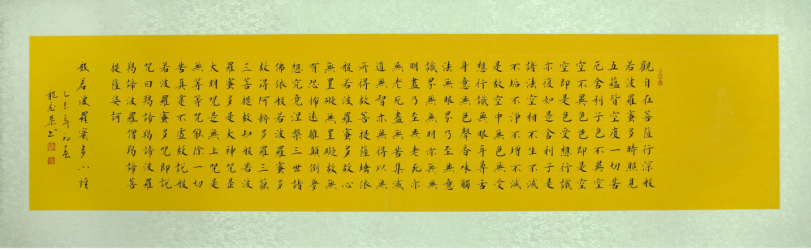 觀自在菩薩行深般
若波羅蜜多時照見
五蘊皆空度一切苦
厄舍利子色不異空
空不異色色即是空
空即是色受想行識
亦復如是舍利子是
諸法空相不生不滅
不垢不淨不增不減
是故空中無色無受
想行識無眼耳鼻舌
身意無色聲香味觸
法無眼界乃至無意
識界無無明亦無無
明盡乃至無老死亦
無老死盡無苦集滅
道無智亦無得以無
所得故菩提薩埵依
般若波羅蜜多故心
無罣礙無罣礙故無
有恐怖遠離顛倒夢
想究竟涅槃三世諸
佛依般若波羅蜜多
故得阿耨多羅三藐
三菩提故知般若波
羅蜜多是大神咒是
大明咒是無上咒是
無等等咒能除一切
苦真實不虛故說般
若波羅蜜多咒即說
咒曰羯諦羯諦波羅
羯諦波羅僧羯諦菩
提薩婆訶
般若波羅蜜多心經
乙未年初春